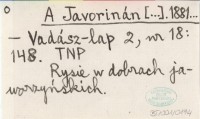 o
A Javorinán [...]. 1881...
- Vadász-lap 2, nr 18:
148. TNP
Rysie w dobrach ja-
worzyńskich.